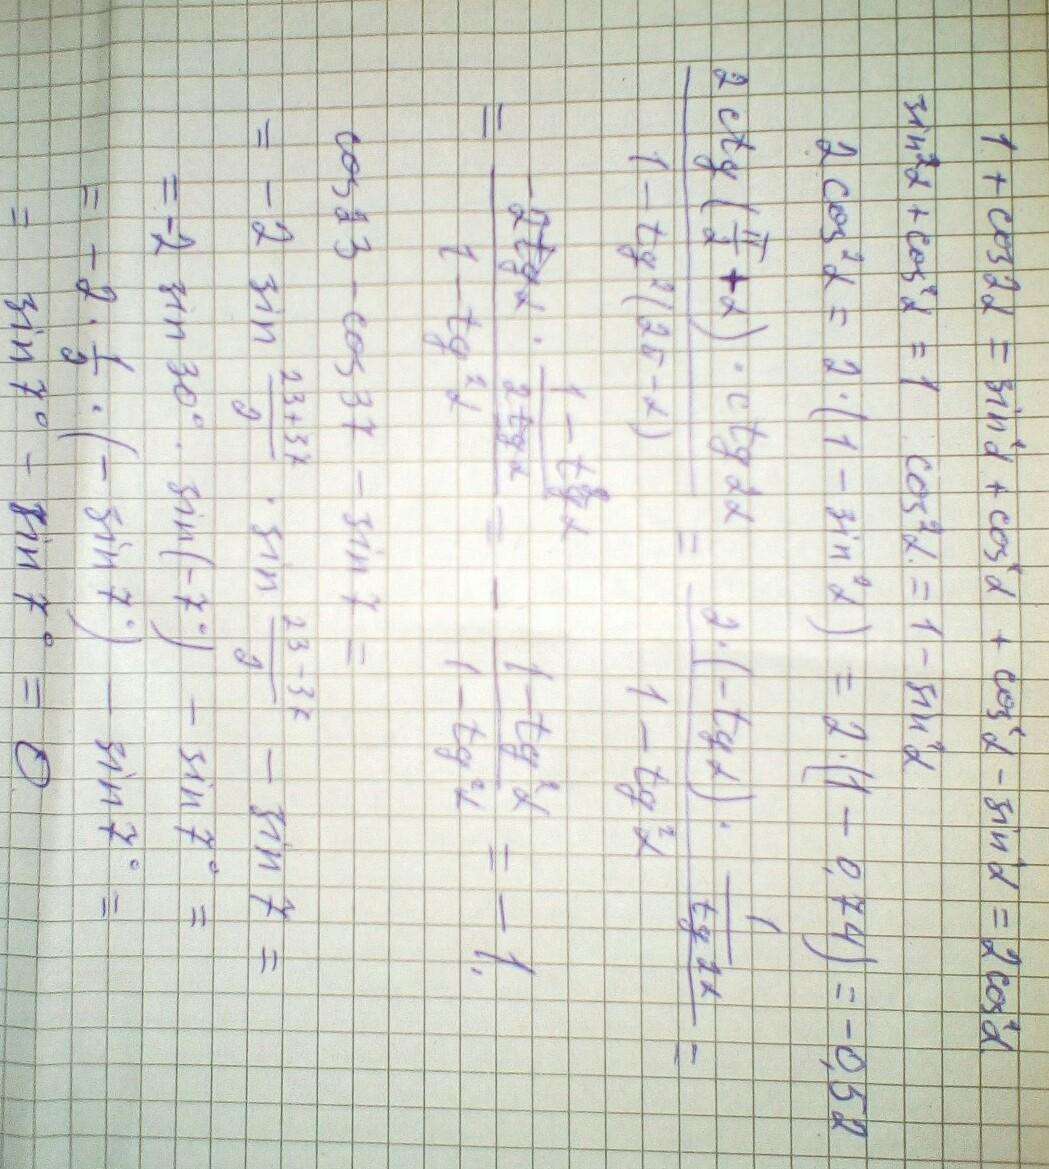 1 + cos2α = sin²α + cos²α + cos²α - sin²α = 2cos²α
sin²α + cos²α = 1 cos²α = 1 - sin²α
2cos²α = 2·(1 - sin²α) = 2·(1 - 0,74) = -0,52
2ctg(π/2 + α) · ctg2α / 1 - tg²(2π - α) = 2·(-tgα) · 1/tg2α / 1 - tg²α =
= -2tgα · 1 - tg²α/2tgα / 1 - tg²α = - 1 - tg²α / 1 - tg²α = -1,
cos23 - cos37 - sin7 =
= -2 sin 23+37/2 · sin 23-37/2 - sin7 =
= -2 sin30° · sin(-7°) - sin7° =
= -2 · 1/2 · (-sin7°) - sin7° =
= sin7° - sin7° = 0